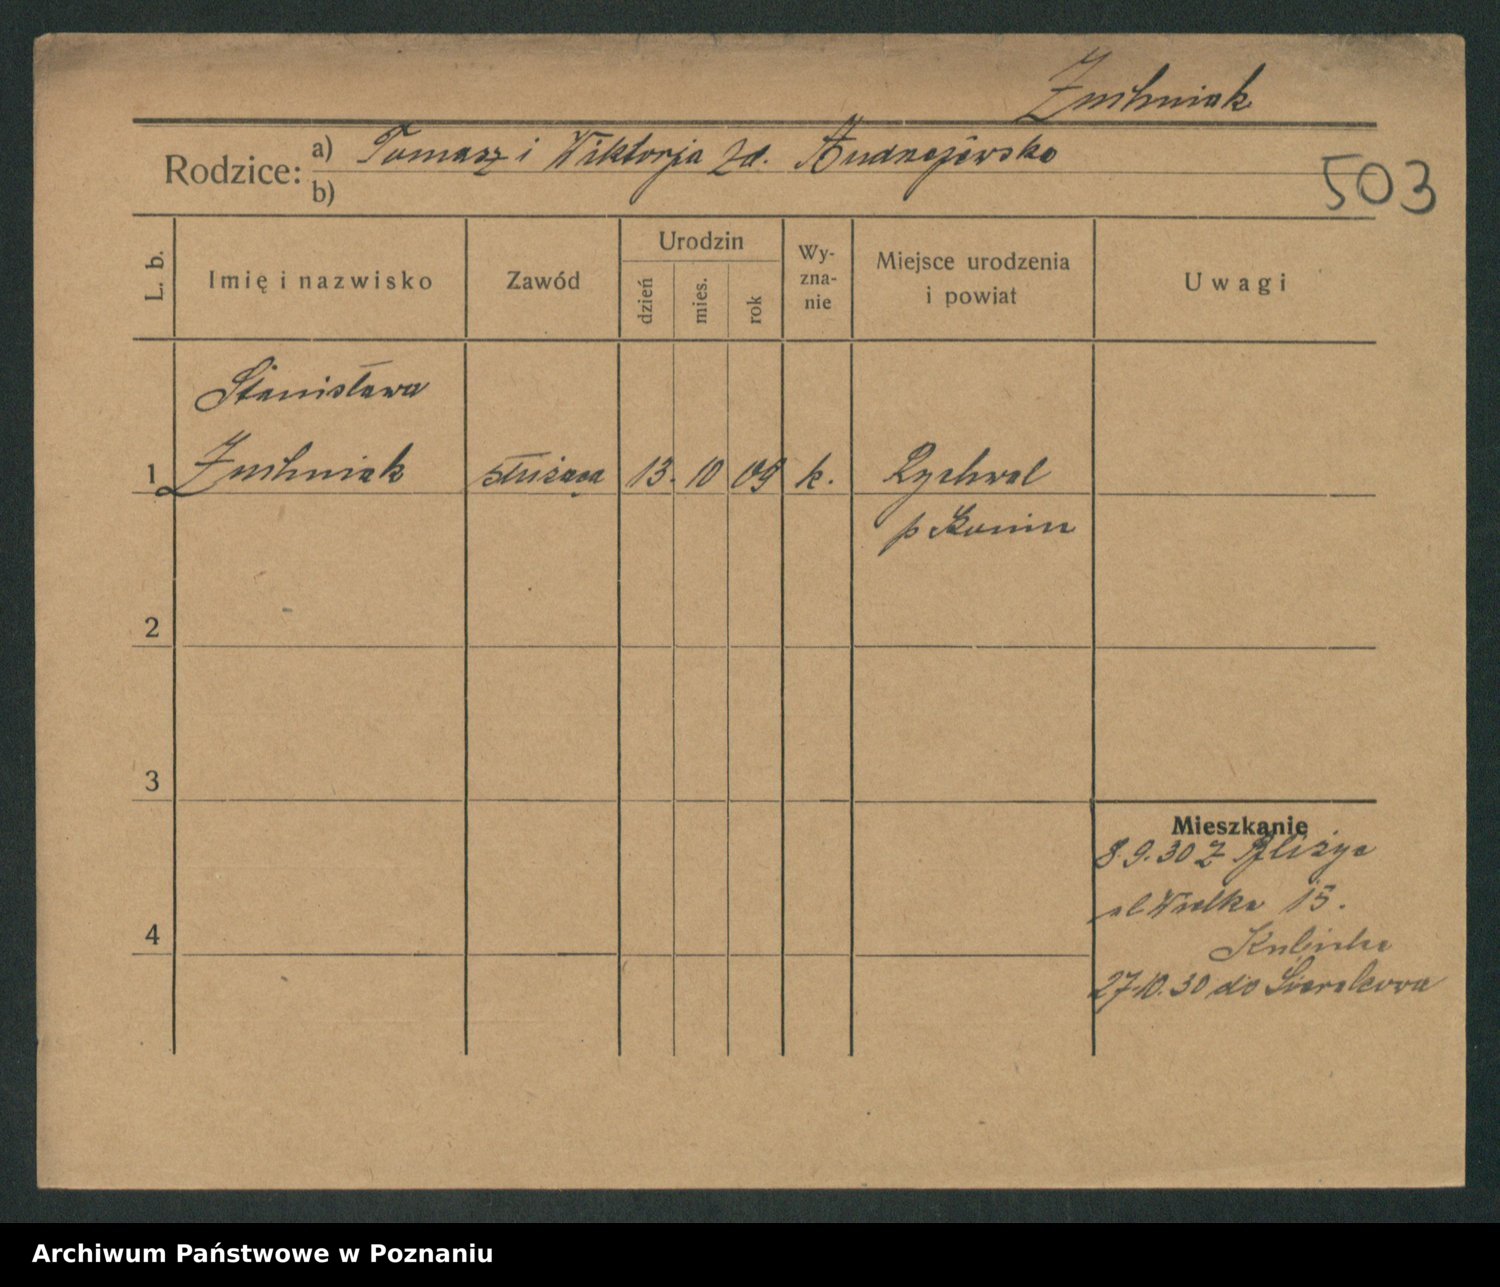 Rodzice:
a) Tomasz i Wiktorja zd. Andrzejewska
b)
503
L. b.
Imię i nazwisko
Zawód
Urodzin
dzień
mies.
rok
Wy-
zna-
nie
Miejsce urodzenia
i powiat
Uwagi
Stanisława
1 służąca 13. 10 09 k. Rychwal
p Konin
2
3
Mieszkanie
8.9.30 z
ul Wielka 15.
4
27.10.30 do
Archiwum Państwowe w Poznaniu